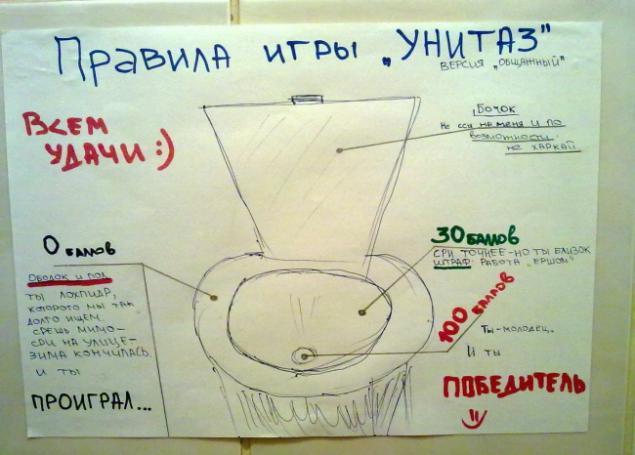 Правила игры „УНИТАЗ"
ВЕРСИЯ „ОБЩАЖНЫЙ"
ВСЕМ
УДАЧИ:)
Бочок
Не сси на меня и по
возможности
не харкай
0 баллов
Ободок и пол
ты лохпидр,
которого мы так
долго ищем.
срешь мимо-
сри на улице-
зима кончилась.
и ты
ПРОИГРАЛ...
30 баллов
сри точнее-но ты близок
штраф: работа „ершом"
100 баллов
Ты-молодец.
И ты
ПОБЕДИТЕЛЬ
=)